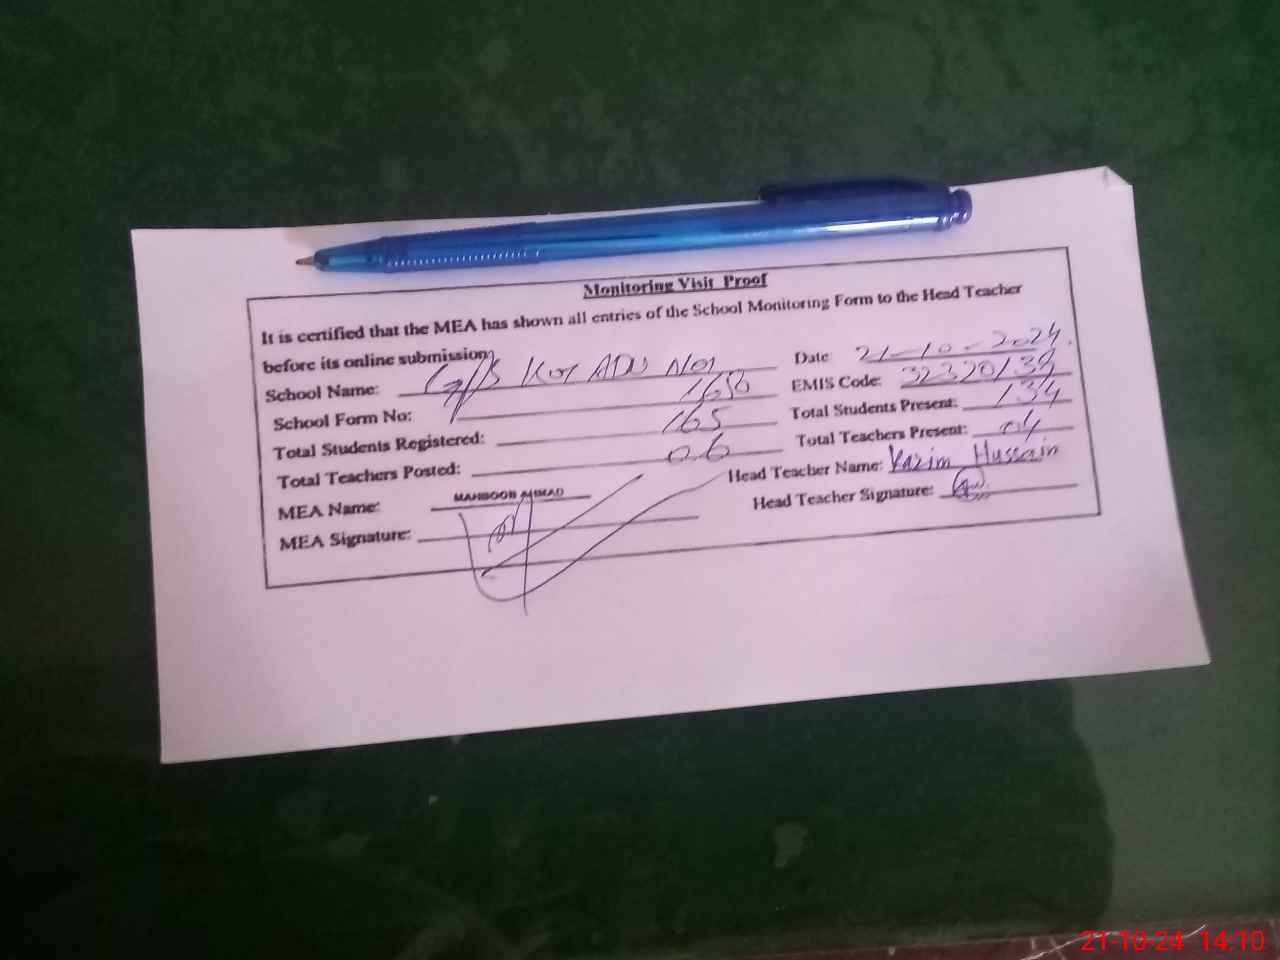 Monitoring Visit Proof
It is certified that the MEA has shown all entries of the School Monitoring Form to the Head Teacher
before its online submission.
Date 21-10-2024.
School Name: Kot ADU No1
EMIS Code: 32320139
School Form No: 1650
Total Students Present: 134
Total Students Registered: 165
Total Teachers Present: 04
Total Teachers Posted: 06
Head Teacher Name: Kazim Hussain
MEA Name: MAHBOOB AHMAD
Head Teacher Signature:
MEA Signature:
21-10-24 14:10